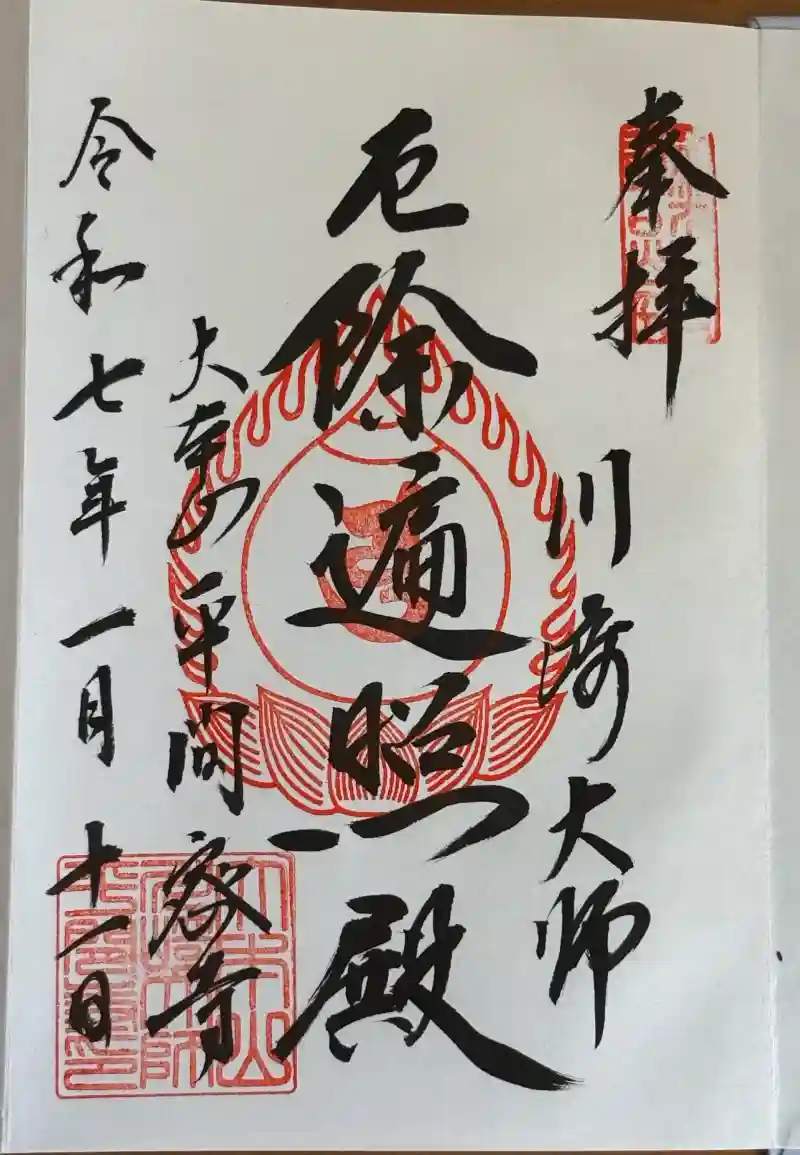 奉拝
川崎大師
厄除遍照殿
大本山平間密寺
令和七年一月十一日